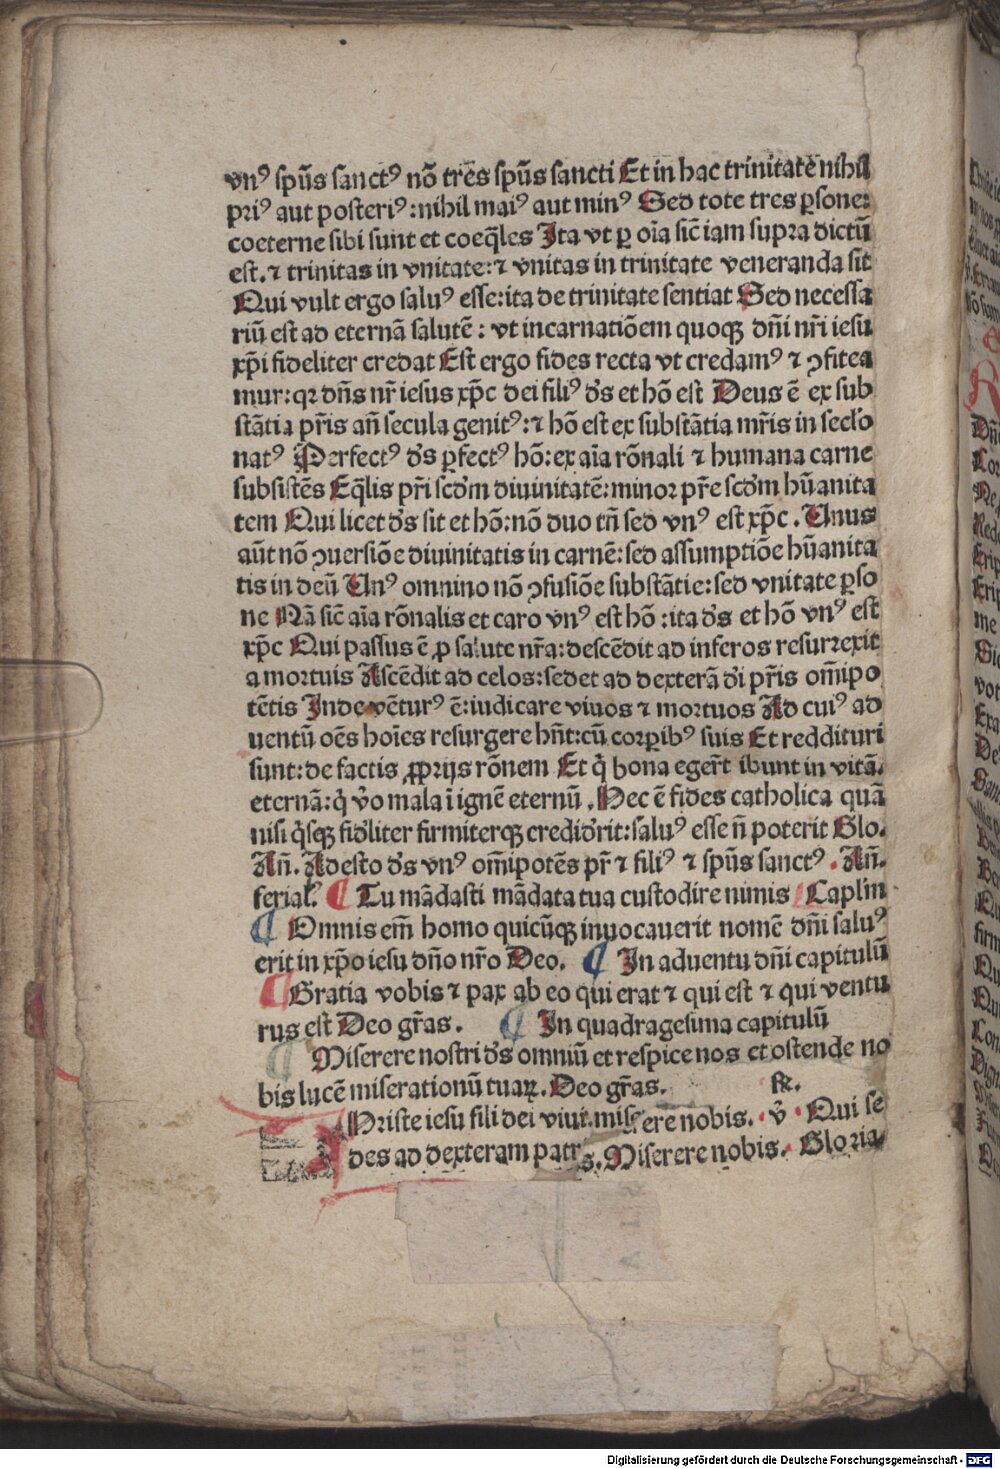 vnꝰ spūs sanctꝰ nō tres spūs sancti Et in hac trinitate nihil
priꝰ aut posteriꝰ: nihil maiꝰ aut minꝰ Sed tote tres ꝑsone:
coeterne sibi sunt et coeq̄les Ita vt ꝑ oīa sic̄ iam supra dictū
est. ⁊ trinitas in vnitate: ⁊ vnitas in trinitate veneranda sit
Qui vult ergo saluꝰ esse: ita de trinitate sentiat Sed necessa
riū est ad eternā salutē: vt incarnatiōem quoqꝫ dn̄i nr̄i iesu
xp̄i fideliter credat Est ergo fides recta vt credamꝰ ⁊ ꝯfitea
mur: qꝛ dn̄s nr̄ iesus xp̄c dei filiꝰ d̓s et hō est Deus ē ex sub
stātia pr̄is an̄ secula genitꝰ: ⁊ hō est ex substātia mr̄is in secl̓o
natꝰ Perfectꝰ d̓s ꝑfectꝰ hō: ex aīa rōnali ⁊ humana carne
subsistēs Eq̄lis pr̄i scd̓m diuinitatē: minor pr̄e scd̓m hūanita
tem Qui licet d̓s sit et hō: nō duo tn̄ sed vnꝰ est xp̄c. Unus
aūt nō ꝯuersiōe diuinitatis in carnē: sed assumptiōe hūanita
tis in deū Unꝰ omnino nō ꝯfusiōe substātie: sed vnitate ꝑso
ne Nā sic̄ aīa rōnalis et caro vnꝰ est hō: ita d̓s et hō vnꝰ est
xp̄c Qui passus ē ꝓ salute nr̄a: descēdit ad inferos resurrexit
a mortuis Ascēdit ad celos: sedet ad dexterā d̓i pr̄is om̄ipo
tētis Inde vēturꝰ ē: iudicare viuos ⁊ mortuos Ad cuiꝰ ad
uentū oēs hoīes resurgere hn̄t: cū corꝑibꝰ suis Et reddituri
sunt: de factis ꝓprijs rōnem Et q̇ bona egerūt ibunt in vitā.
eternā: q̇ v̓o mala ī ignē eternū. Hec ē fides catholica quā
nisi q̇sqꝫ fid̓liter firmiterqꝫ credid̓rit: saluꝰ esse n̄ poterit Glo.
An̄. Adesto d̓s vnꝰ om̄ipotēs pr̄ ⁊ filiꝰ ⁊ spūs sanctꝰ. An̄.
ferial̓. ¶ Tu mādasti mādata tua custodire nimis Capl̓m
¶ Omnis em̄ homo quicūqꝫ inuocauerit nomē dn̄i saluꝰ
erit in xp̄o iesu dn̄o nr̄o Deo. ¶ In aduentu dn̄i capitulū
¶ Gratia vobis ⁊ pax ab eo qui erat ⁊ qui est ⁊ qui ventu
rus est Deo gr̄as. ¶ In quadragesima capitulū
¶ Miserere nostri d̓s omniū et respice nos et ostende no
bis lucē miserationū tuaꝝ. Deo gr̄as. ℟.
Hriste iesu fili dei viui. miserere nobis. v̓. Qui se
des ad dexteram patris. Miserere nobis. Gloria
Digitalisierung gefördert durch die Deutsche Forschungsgemeinschaft - DFG